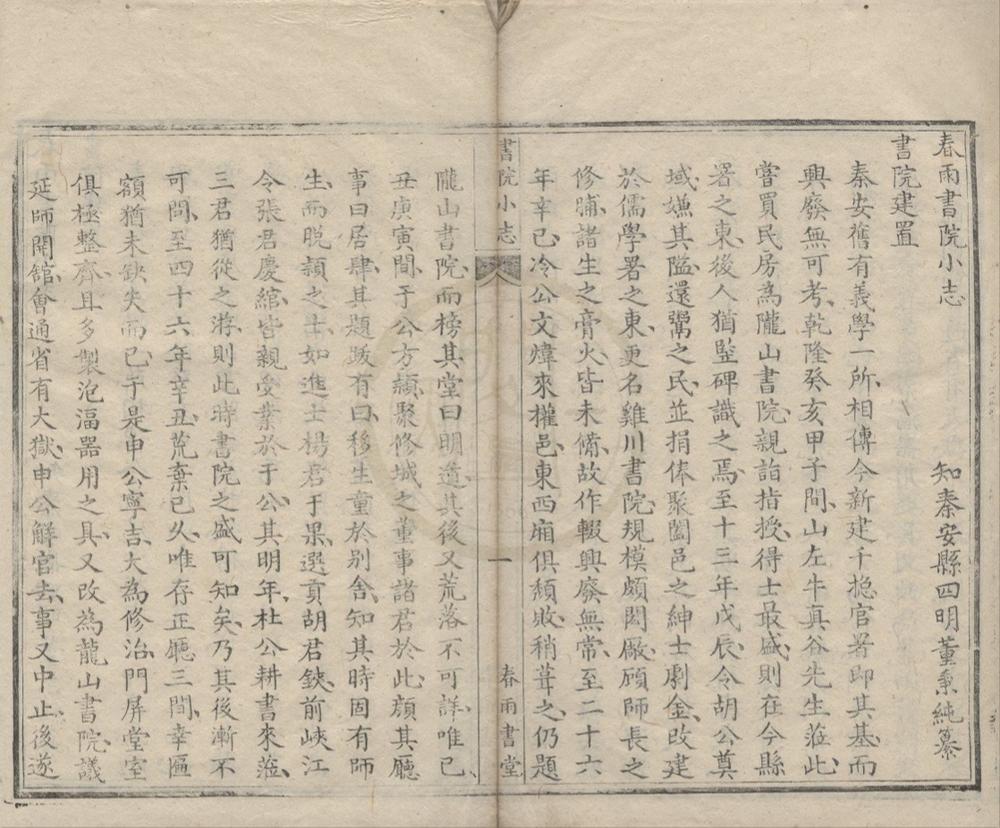 春雨書院小志
知秦安縣四明董秉純纂
書院建置
秦安舊有義學一所相傳今新建千捴官署即其基而
興廢無可考乾隆癸亥甲子間山左牛真谷先生蒞此
嘗買民房為隴山書院親詣指授得士最盛則在今縣
署之東後人猶竪碑識之焉至十三年戊辰令胡公奠
域嫌其隘還鬻之民並捐俸聚闔邑之紳士劇金改建
於儒學署之東更名雞川書院規模頗閎厰顧師長之
修脯諸生之膏火皆未備故作輟興廢無常至二十六
年辛巳冷公文煒來權邑東西廂俱頽敗稍葺之仍題
書院小志
一
春雨書堂
隴山書院而榜其堂曰明道其後又荒落不可詳唯已
丑庚寅間于公方蘱聚修城之董事諸君於此顏其廳
事曰居肆其題跋有曰移生童於别舍知其時固有師
生而脱穎之士如進士楊君于果選貢胡君鈌前峽江
令張君慶綰皆親受業於于公其明年杜公耕書來蒞
三君猶從之游則此時書院之盛可知矣乃其後漸不
可問至四十六年辛丑荒棄已久唯存正廳三間幸匾
額猶未缺失而已于是申公寧吉大為修治門屏堂室
俱極整齊且多製泡湢器用之具又改為龍山書院議
延師開舘會通省有大獄申公觧官去事又中止後遂